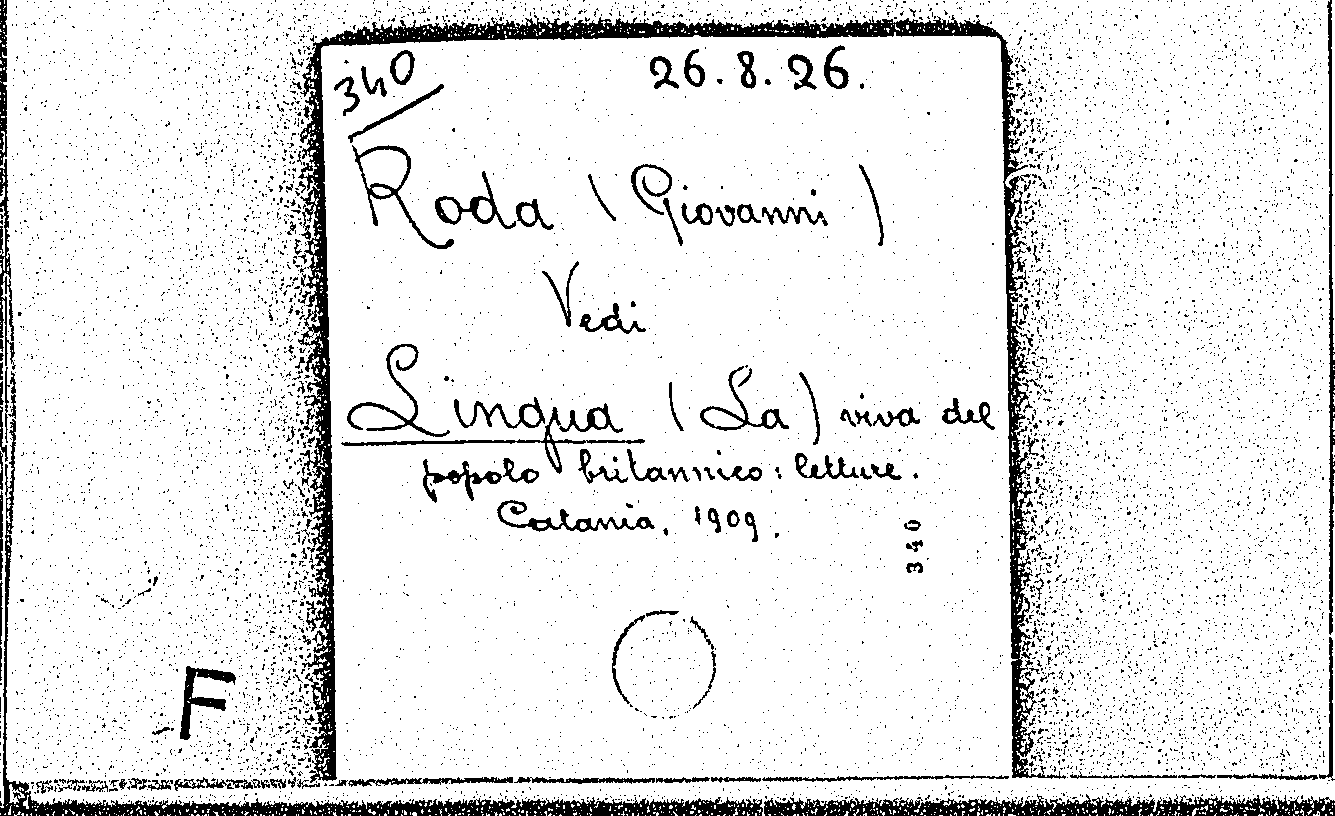 340
26.8.26.
Roda (Giovanni)
Vedi
Lingua (La) viva del
popolo britannico: letture.
Catania, 1909.
340
F